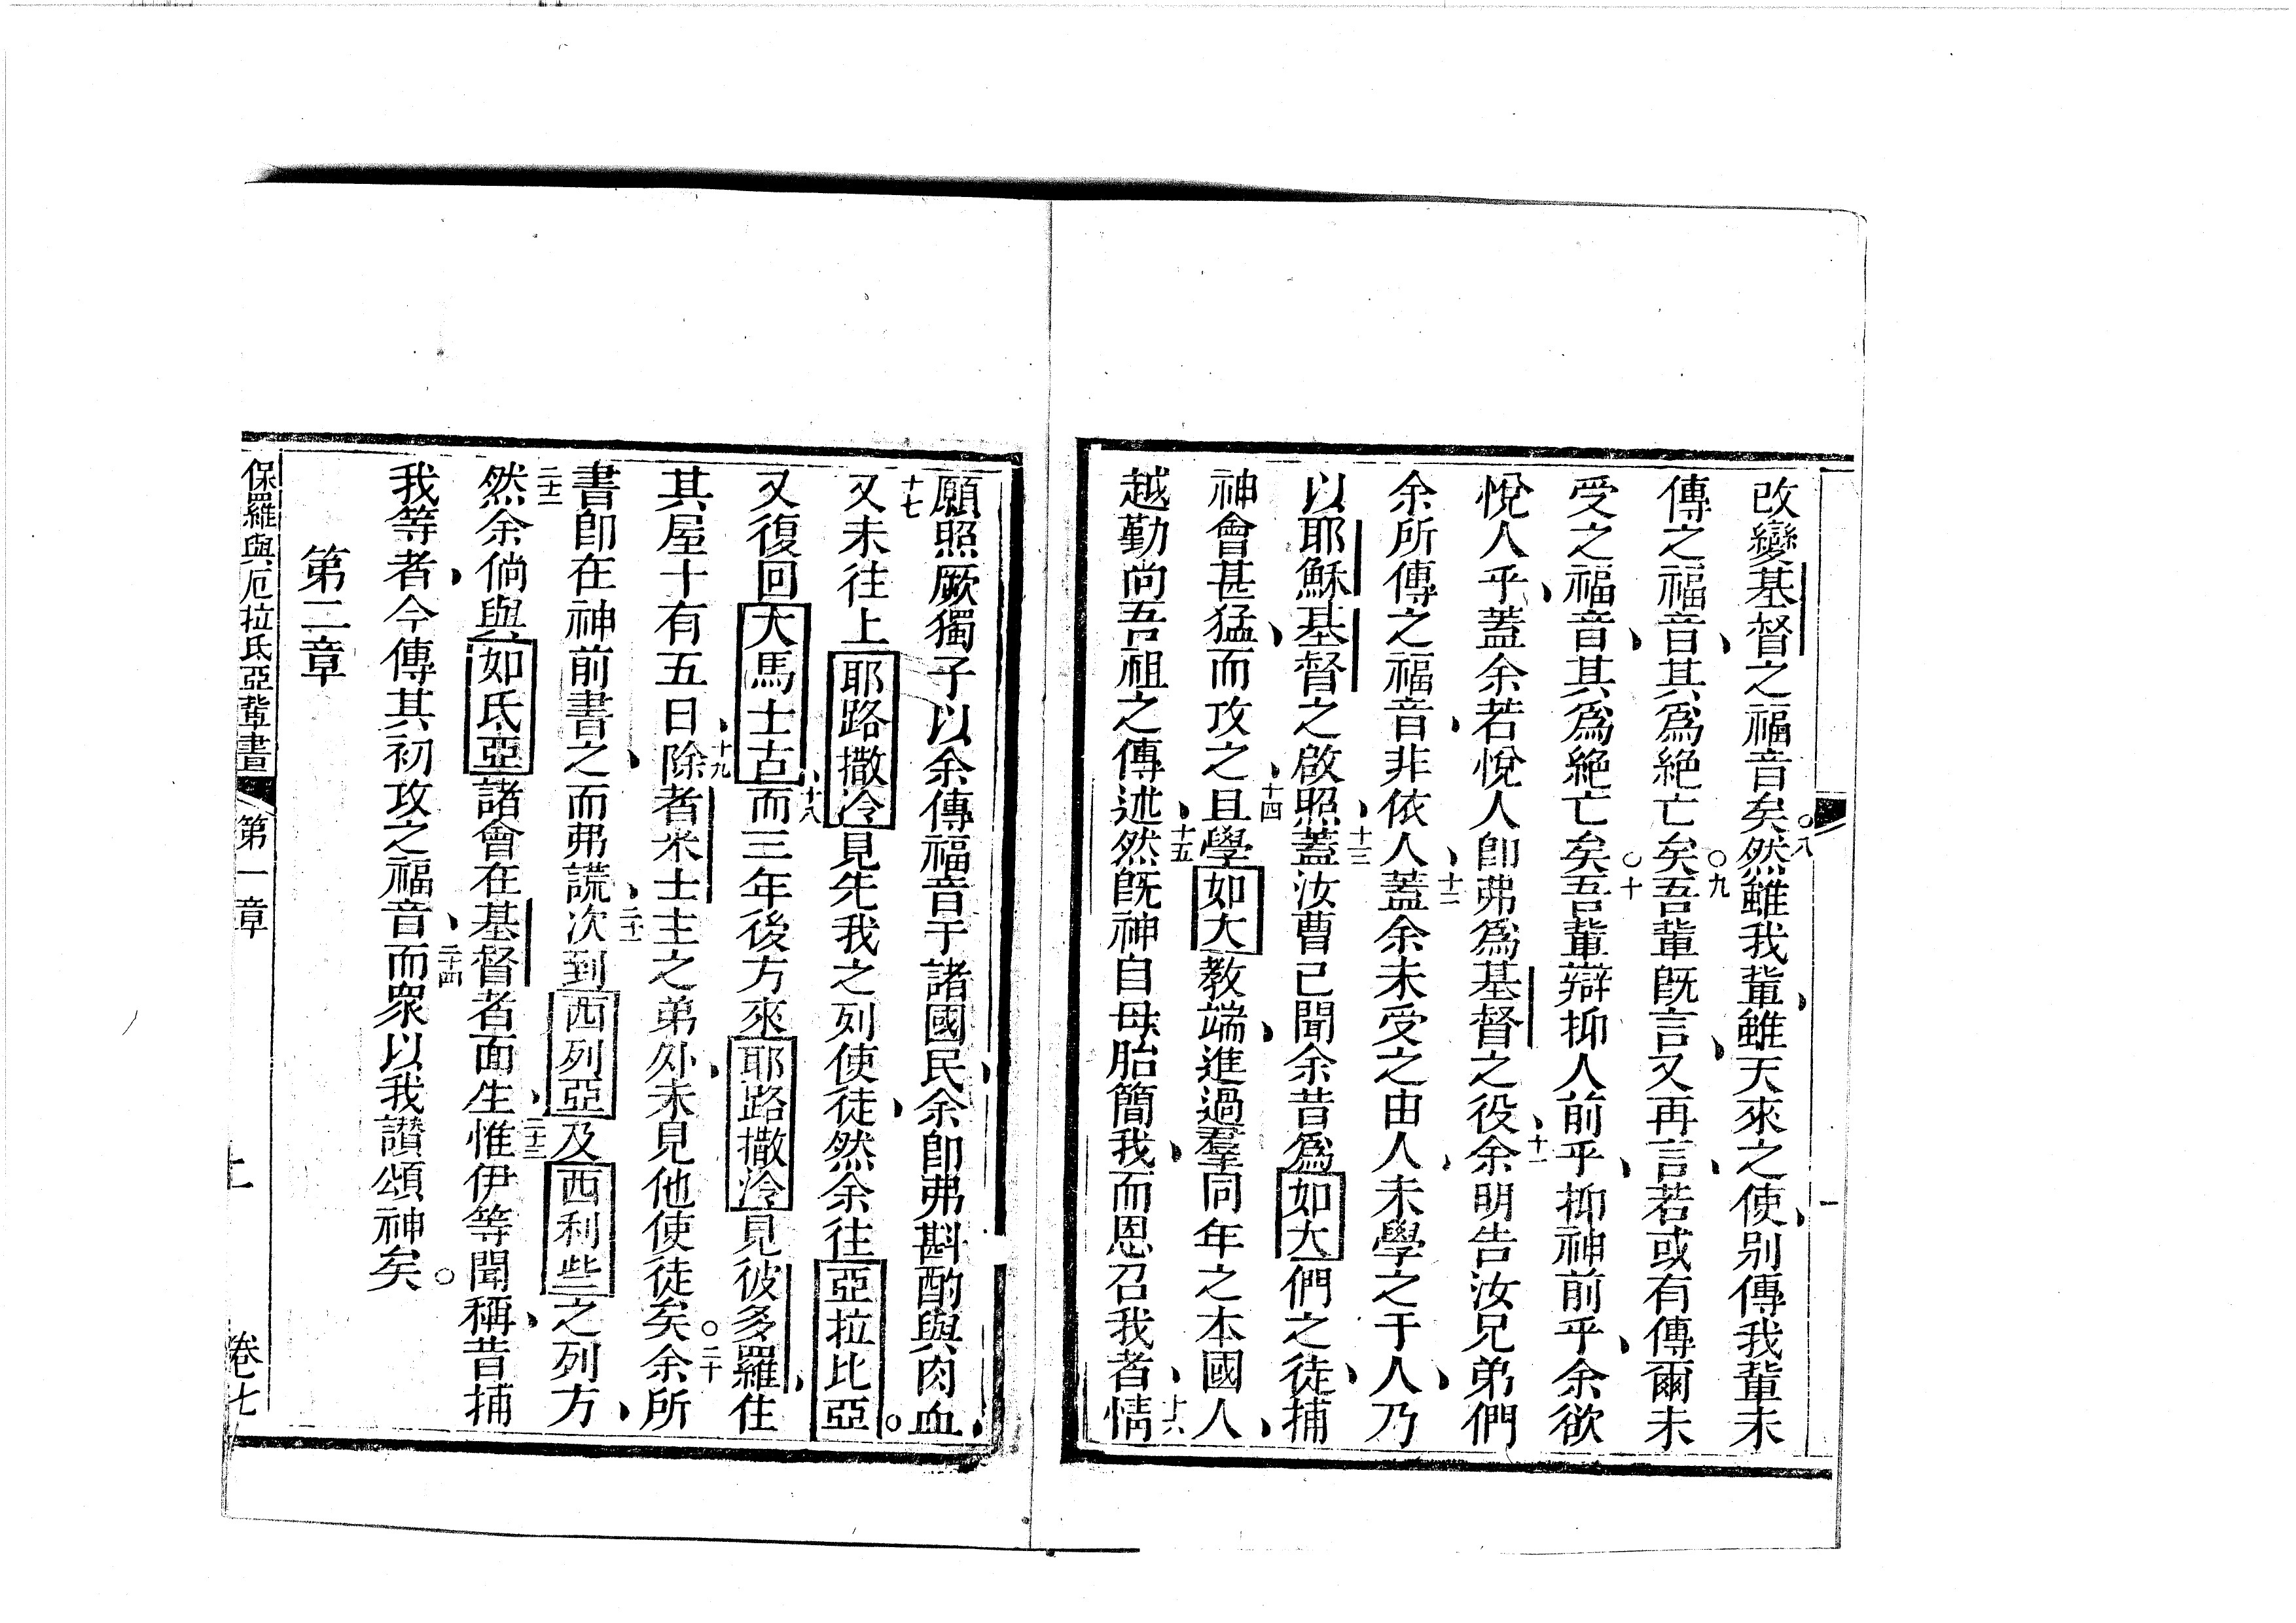 改變基督之福音矣○八然雖我輩、雖天來之使、別傳我輩未
傳之福音、其爲絶亡矣○九吾輩既言、又再言、若或有傳爾未
受之福音、其爲絶亡矣○十吾輩辯抑人前乎、抑神前乎、余欲
悅人乎、蓋余若悅人卽弗爲基督之役、十一余明告汝兄弟們
余所傳之福音、非依人、十二蓋余未受之由人、未學之于人、乃
以耶穌基督之啟照、十三蓋汝曹已聞余昔爲如大們之徒、捕
神會甚猛、而攻之、十四且學如大教端、進過羣同年之本國人、
越勤尚吾祖之傳述、十五然既神自母胎簡我、而恩召我者、十六情
願照厥獨子以余傳福音于諸國民、余卽弗斟酌與肉血、
十七又未往上耶路撒冷見先我之列使徒、然余往亞拉比亞。
又復回大馬士古、十八而三年後方來耶路撒冷見彼多羅、住
其屋十有五日、十九除者米士主之弟外、未見他使徒矣○二十余所
書卽在神前書之、而弗謊、二十一次到西列亞及西利些之列方、
二十二然余倘與如氏亞諸會在基督者面生、二十三惟伊等聞稱、昔捕
我等者、今傳其初攻之福音、二十四而衆以我讚頌神矣○
第二章
保羅與厄拉氏亞輩書 第一章 卷七